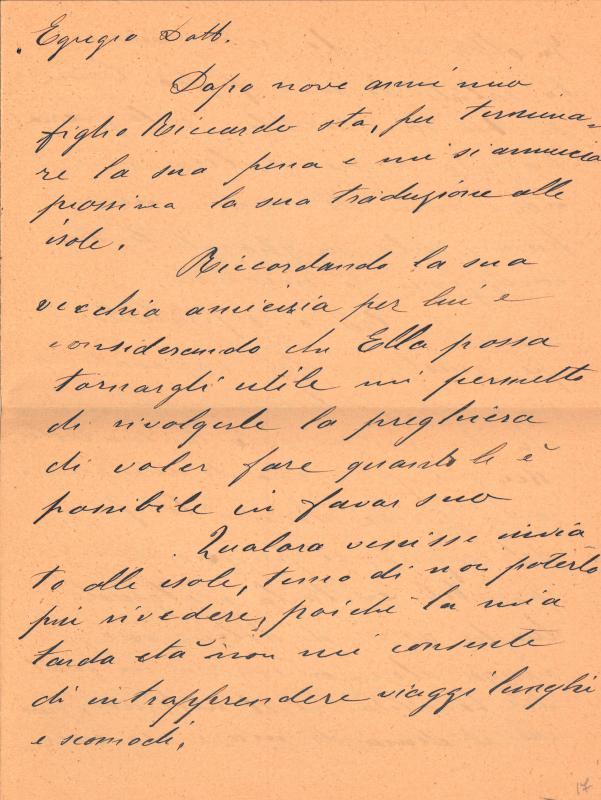 Egregio Dott.
Dopo nove anni mio
figlio Riccardo sta, per termina-
re la sua pena e mi si annuncia
prossima la sua traduzione alle
isole.
Riccordando la sua
vecchia amicizia per lui e
considerando che Ella possa
tornargli utile mi permetto
di rivolgerle la preghiera
di voler fare quanto le è
possibile in favor suo
Qualora venisse invia
to alle isole, temo di non poterlo
più rivedere, poichè la mia
tarda età non mi consente
di intrapprendere viaggi lunghi
e scomodi.
17